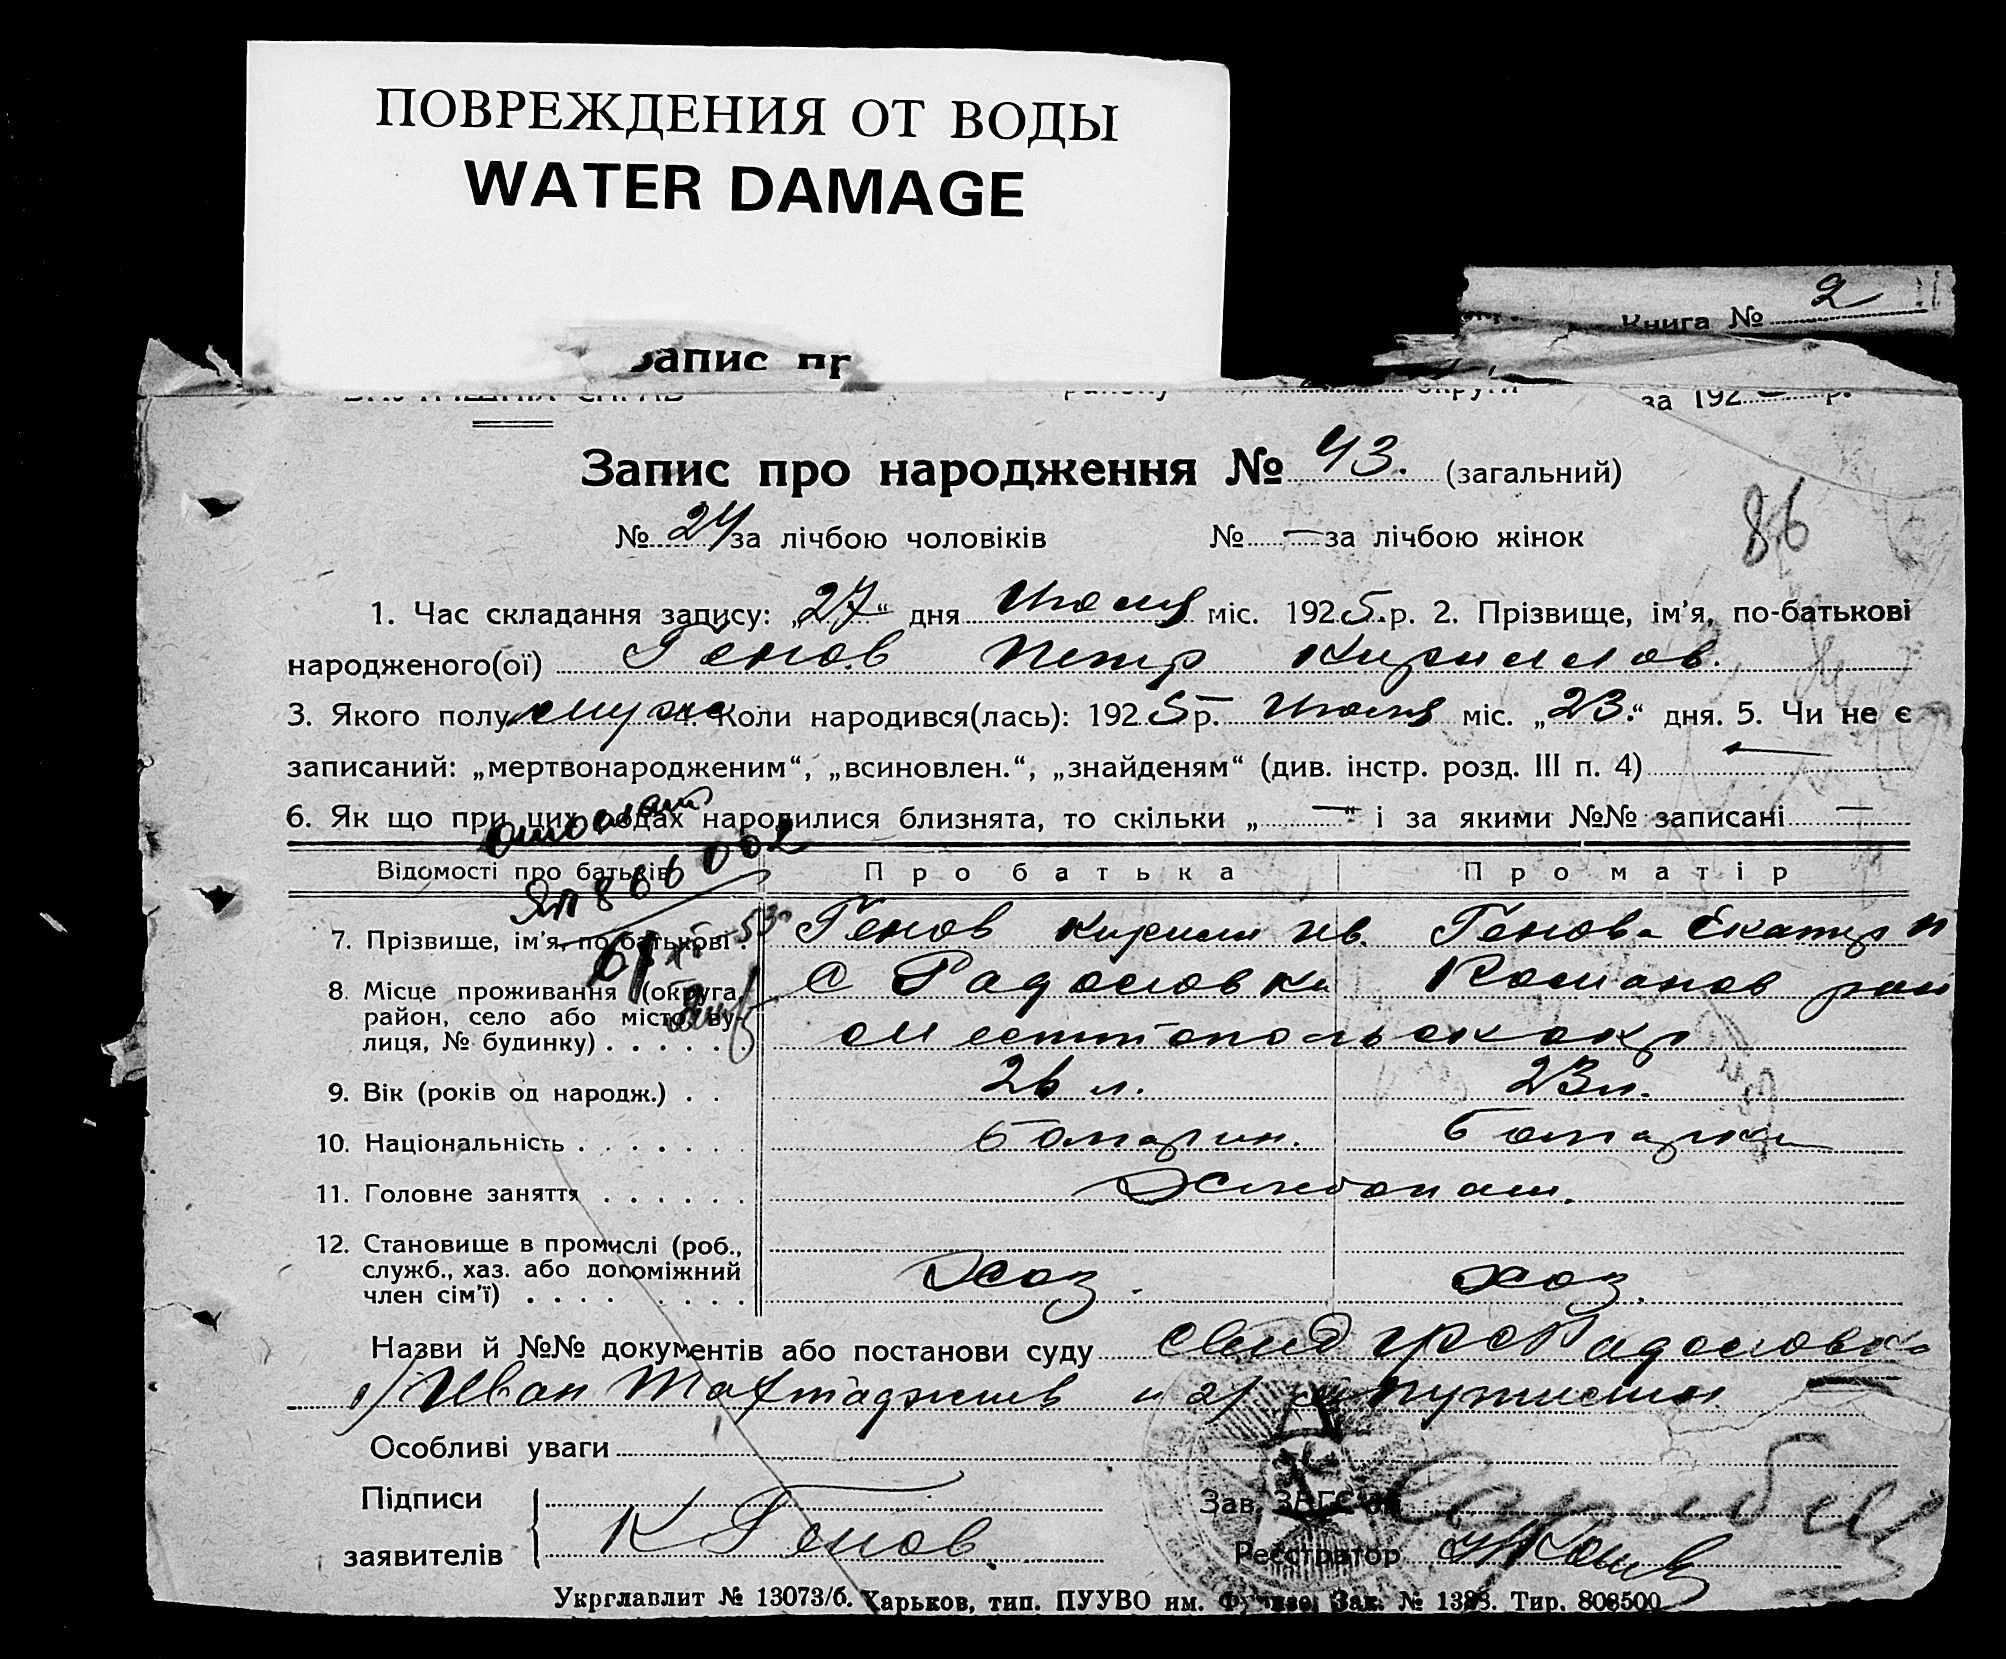 ПОВРЕЖДЕНИЯ ОТ ВОДЫ
WATER DAMAGE
Книга № 2
Запис пр
району округи за 192 р.
Запис про народження № 43. (загальний)
86
№ 24 за лічбою чоловіків № — за лічбою жінок
1. Час складання запису: „27“ дня Июля міс. 1925.р. 2. Прізвище, ім’я, по-батькові
народженого(ої) Генов Петр Кириллов.
3. Якого полу муж 4. Коли народився(лась): 1925 р. Июля міс. „23.“ дня. 5. Чи не є
записаний: „мертвонародженим“, „всиновлен.“, „знайденям“ (див. інстр. розд. III п. 4) —
6. Як що при цих родах народилися близнята, то скільки „—“ і за якими №№ записані —
Відомості про батьків Про батька Про матір
866002
7. Прізвище, ім’я, по-батькові . Генов Кирилл Ив. Генова Екатер
8. Місце проживання (округа, с Радоловка Коланов рай
район, село або місто, ву-
лиця, № будинку) . . . . . . мелитопольск окр
9. Вік (років од народж.) . . 26 л. 23 л.
10. Національність . . . . . . . болгарин. болгарка
11. Головне заняття . . . . . . Хлебопаш.
12. Становище в промислі (роб.,
служб., хаз. або допоміжний Хоз. хоз.
член сім’ї) . . . . . . . . .
Назви й №№ документів або постанови суду свид гр с Радоловка
1) Иван и 2)
Особливі уваги
Підписи Зав. ЗАГС’ом
заявителів К Генов. Реєстратор
Укрглавлит № 13073/б. Харьков, тип. ПУУВО им. Фрунзе. Зак. № 1398. Тир. 808500